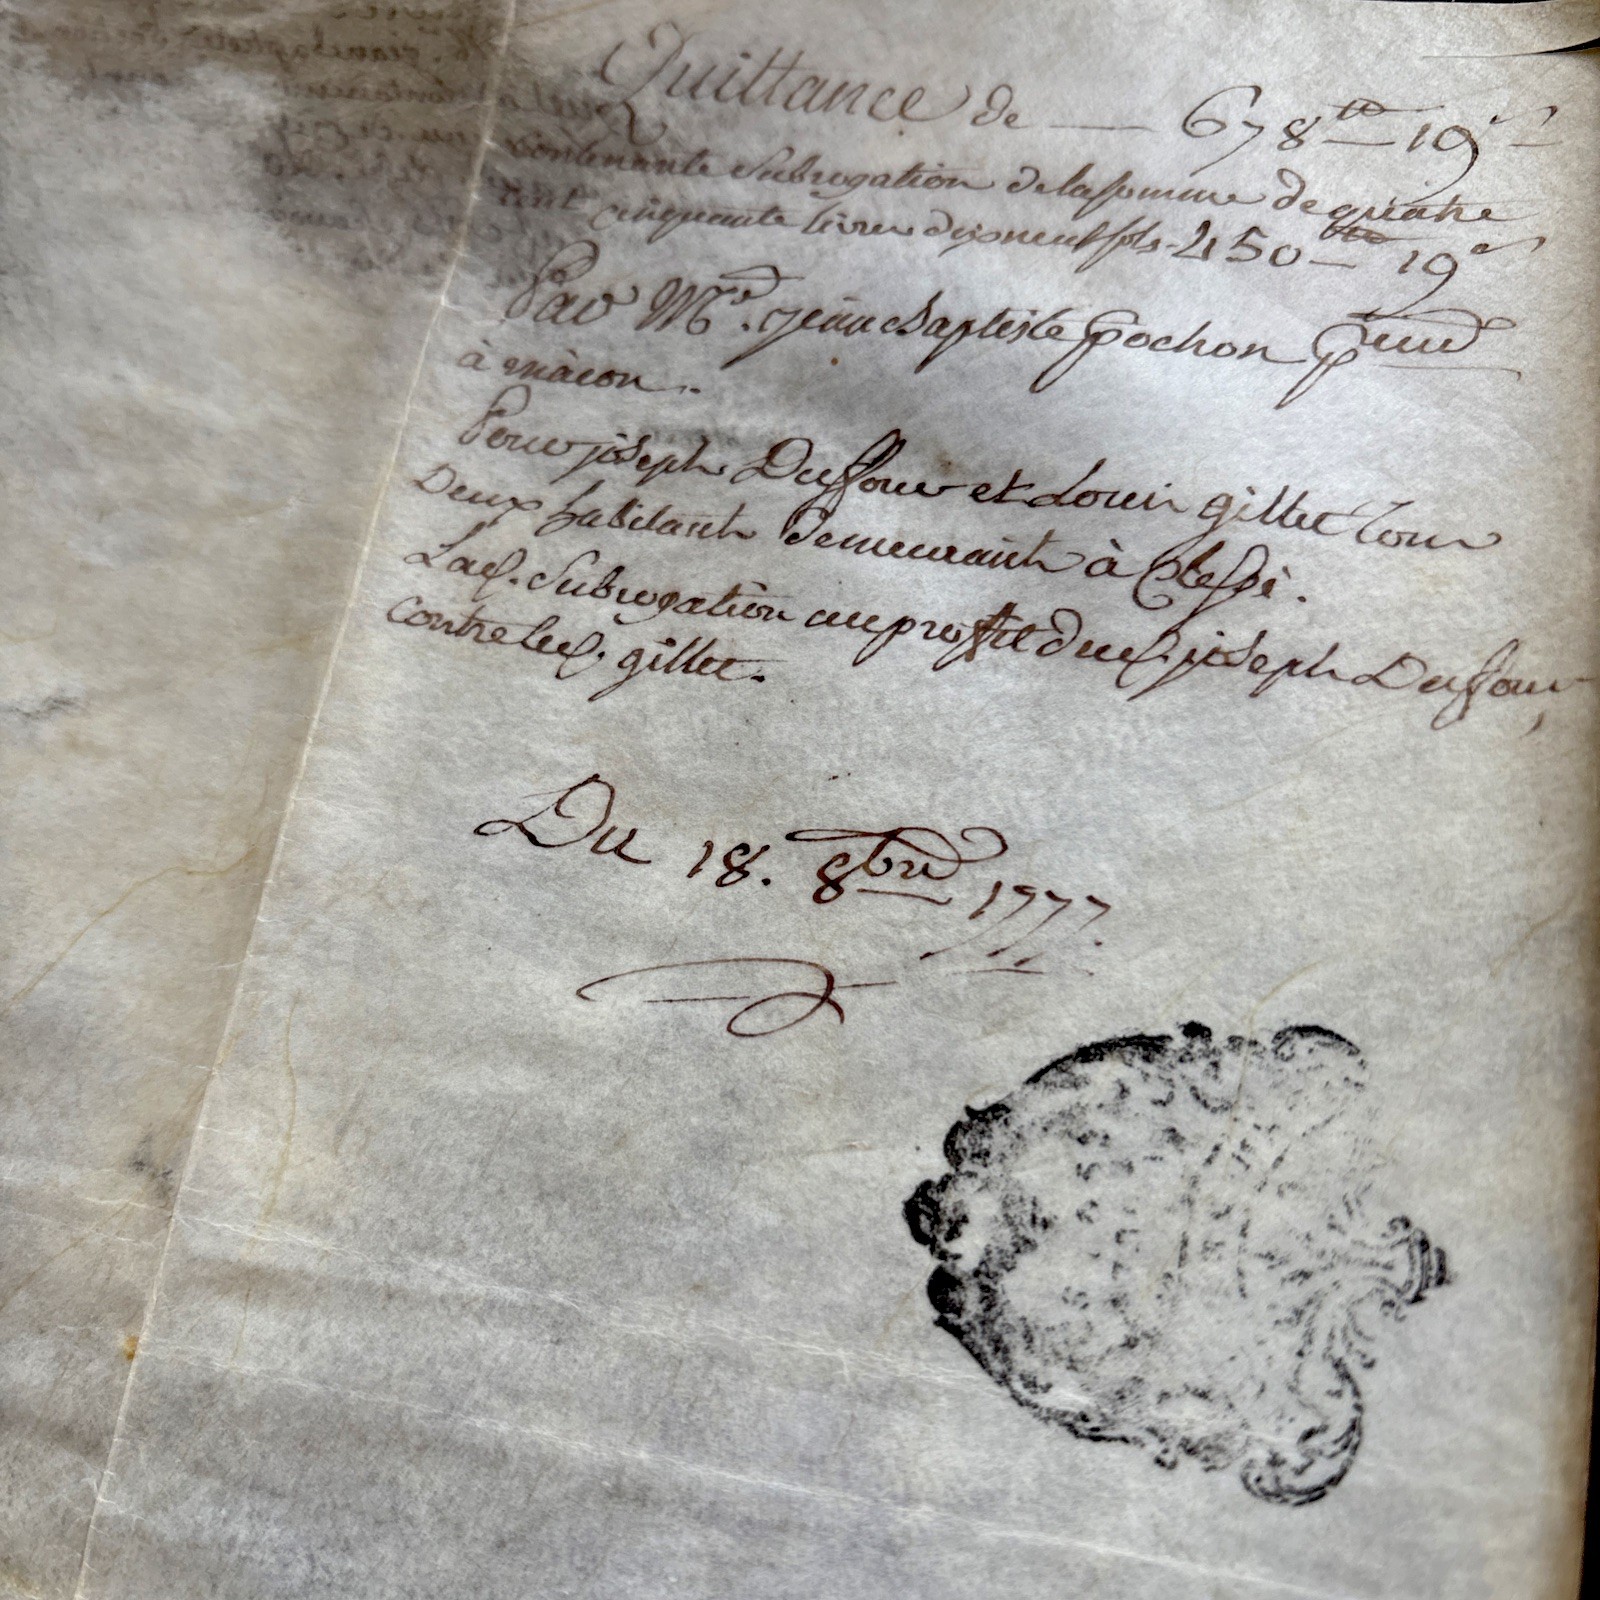 Quittance de — 678ᵗᵗ 19ˢ
contenante Subrogation de la somme de quatre
cent cinquante livres dix neuf sols - 450ᵗᵗ 19ˢ
Par Mʳᵉ. jean Baptiste Pochon
à mâcon.
Pour joseph Duffour et Louis gillet tous
Deux habitants demeurants à Clessé.
Lad. Subrogation au profit dud. joseph Duffour
contre led. gillet.
Du 18. 8bre 1777.